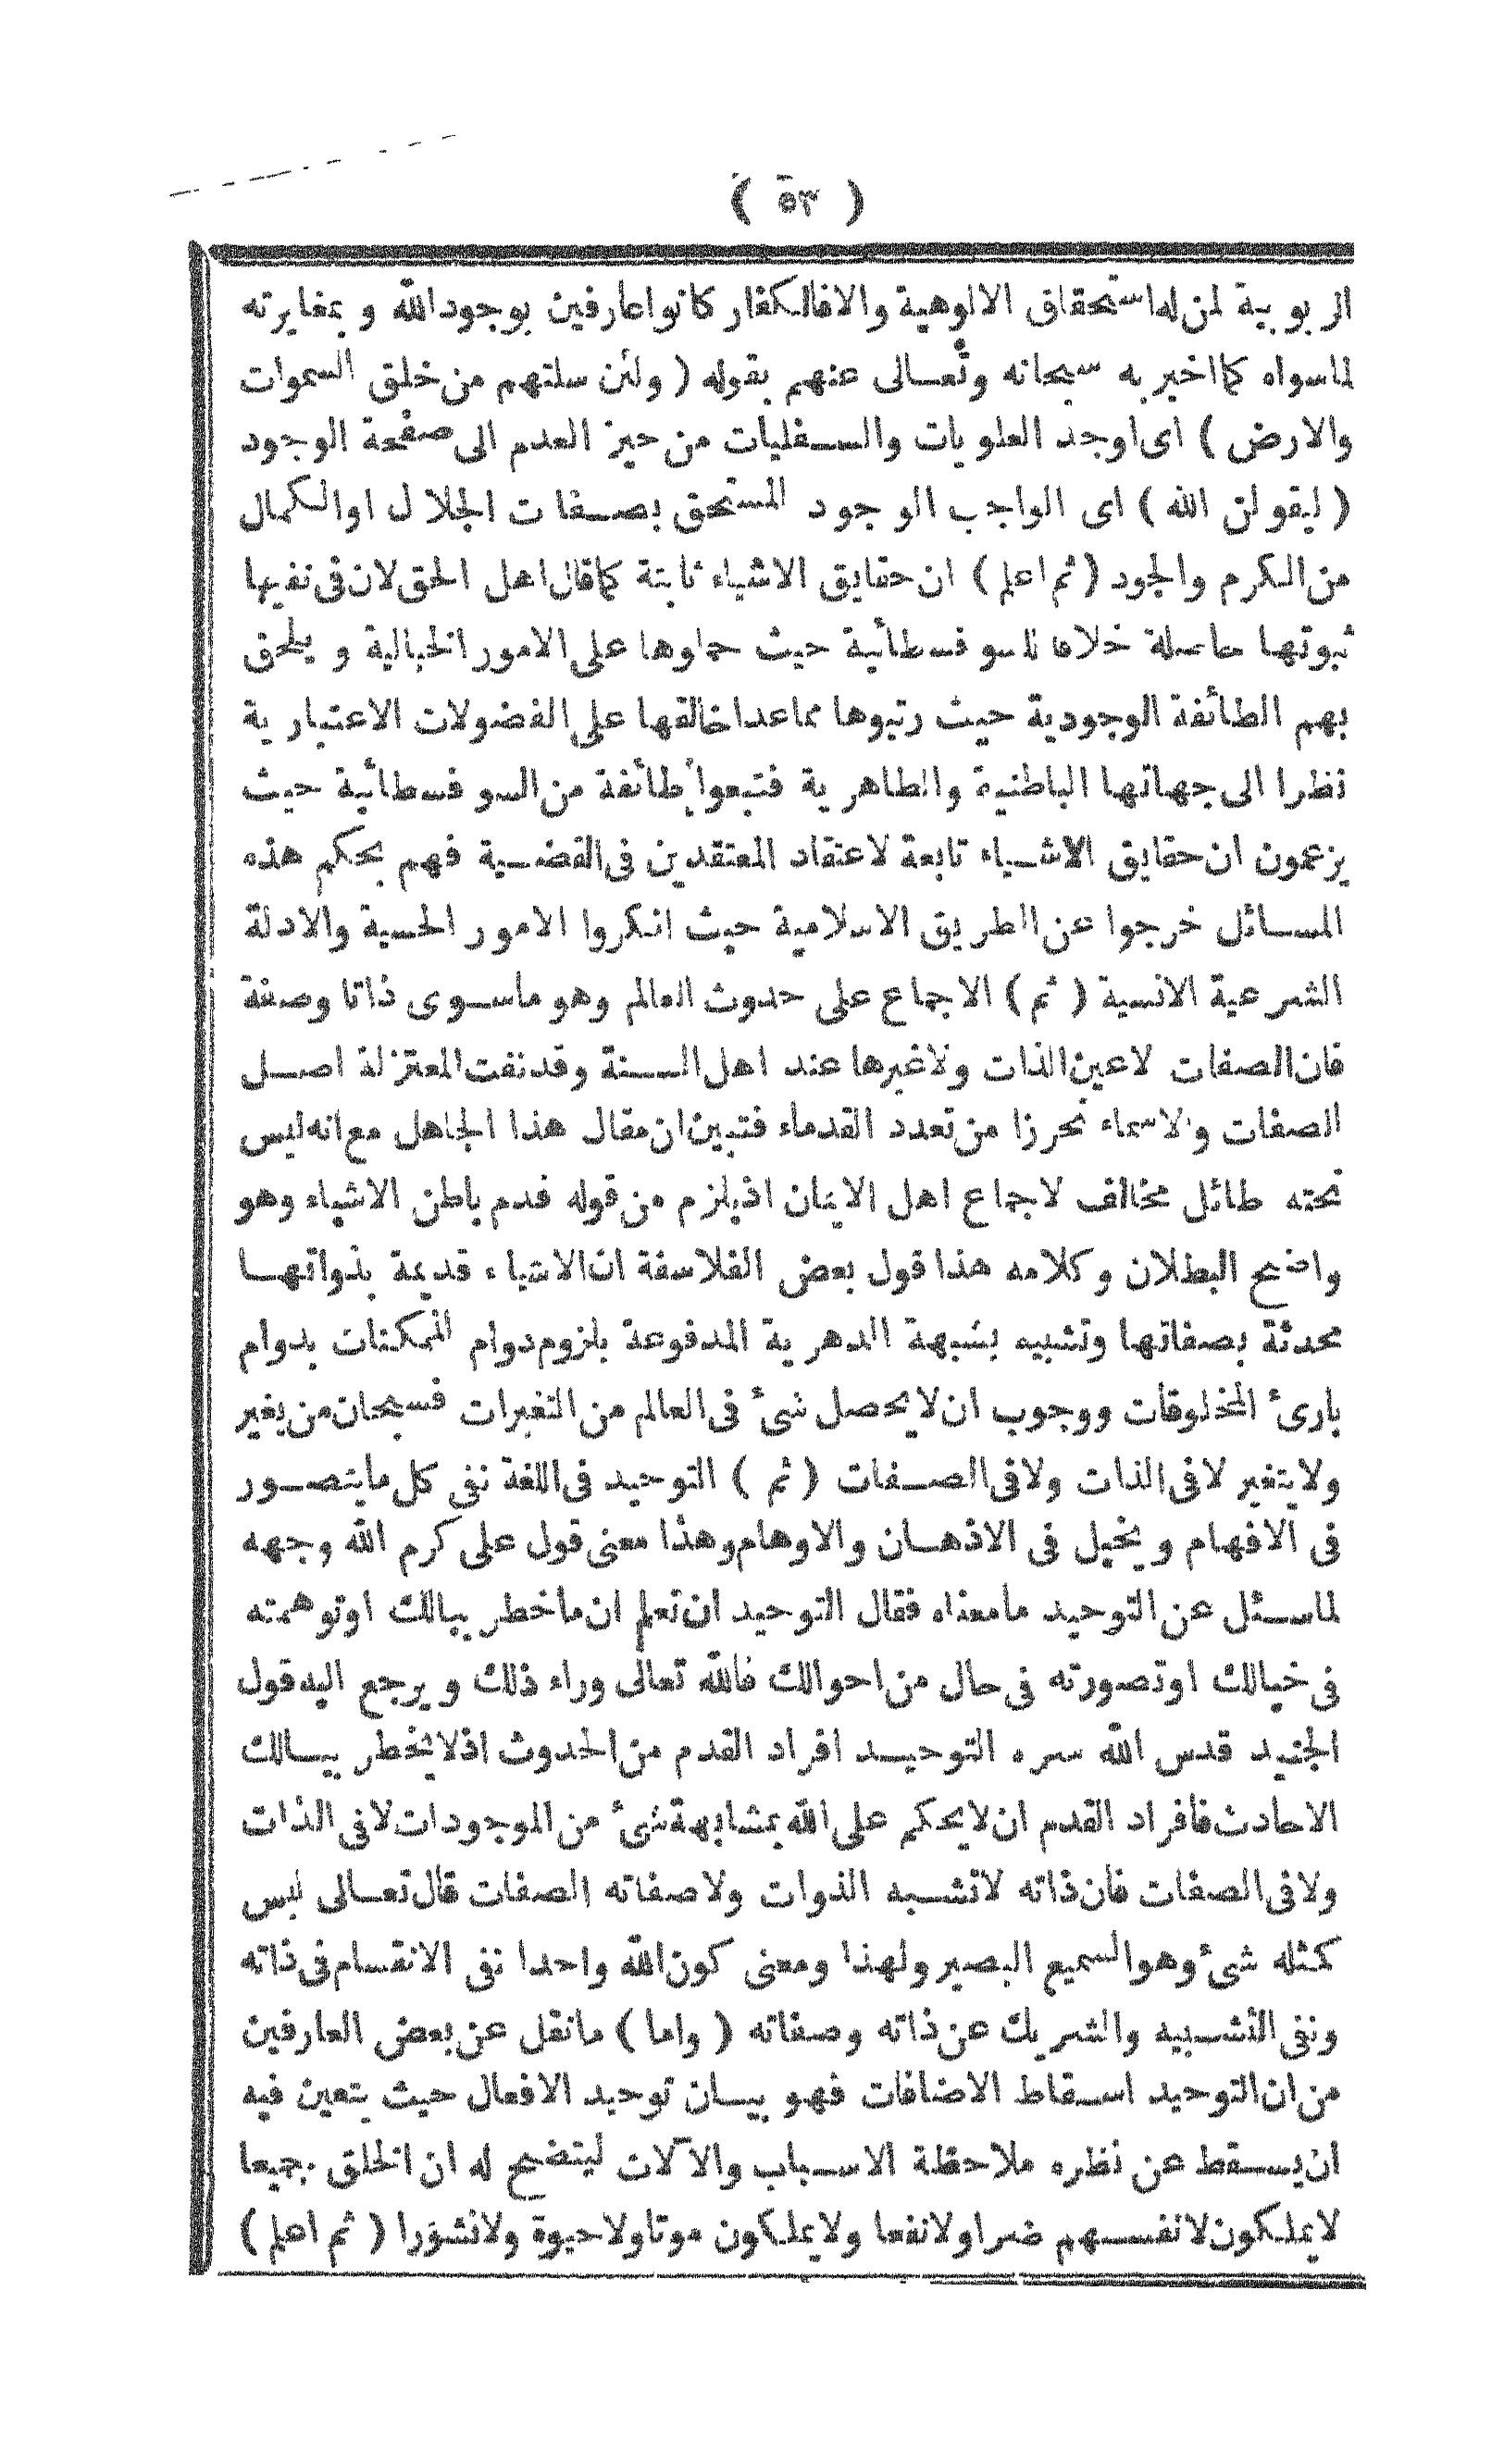 ( ٥٣ )
الربوبية لمن له استحقاق الالوهية والا فالكفار كانوا عارفين بوجود الله و بمغايرته
لما سواه كما اخبر به سبحانه وتعالى عنهم بقوله ( ولئن سلتهم من خلق السموات
والارض ) اى اوجد العلويات والسفليات من حيز العدم الى صفحة الوجود
( ليقولن الله ) اى الواجب الوجود المستحق بصفات الجلال او الكمال
من الكرم والجود ( ثم اعلم ) ان حقايق الاشياء ثابتة كما قال اهل الحق لان فى نفيها
ثبوتها حاصلة خلافا للسو فسطائية حيث حملوها على الامور الخيالية و يلحق
بهم الطائفة الوجودية حيث رتبوها مما عدا خالقها على الفضولات الاعتبارية
نظرا الى جهاتها الباطنية والظاهرية فتبعوا طائفة من السو فسطائية حيث
يزعمون ان حقايق الاشياء تابعة لاعتقاد المعتقدين فى القضية فهم بحكم هذه
المسائل خرجوا عن الطريق الاسلامية حيث انكروا الامور الحسية والادلة
الشرعية الانسية ( ثم ) الاجماع على حدوث العالم وهو ماسوى ذاتا وصفة
فان الصفات لاعين الذات ولاغيرها عند اهل السنة وقد نفت المعتزلة اصل
الصفات والاسماء تحرزا من تعدد القدماء فتبين ان مقال هذا الجاهل مع انه ليس
تحته طائل مخالف لاجماع اهل الايمان اذ يلزم من قوله قدم باطن الاشياء وهو
واضح البطلان وكلامه هذا قول بعض الفلاسفة ان الاشياء قديمة بذواتها
محدثة بصفاتها وتشبيه بشبهة الدهرية المدفوعة بلزوم دوام الممكنات بدوام
بارئ المخلوقات ووجوب ان لا يحصل شئ فى العالم من التغيرات فسبحان من يغير
ولا يتغير لا فى الذات ولا فى الصفات ( ثم ) التوحيد فى اللغة نفى كل ما يتصور
فى الافهام و يخيل فى الاذهان والاوهام وهذا معنى قول على كرم الله وجهه
لما سئل عن التوحيد ما معناه فقال التوحيد ان تعلم ان ما خطر ببالك او توهمته
فى خيالك او تصورته فى حال من احوالك فالله تعالى وراء ذلك و يرجع اليه قول
الجنيد قدس الله سره التوحيد افراد القدم من الحدوث اذ لا يخطر ببالك
الا حادث فافراد القدم ان لا يحكم على الله بمشابهة شئ من الموجودات لا فى الذات
ولا فى الصفات فان ذاته لا تشبه الذوات ولا صفاته الصفات قال تعالى ليس
كمثله شئ وهو السميع البصير ولهذا ومعنى كون الله واحدا نفى الانقسام فى ذاته
ونفى التشبيه والشريك عن ذاته وصفاته ( واما ) ما نقل عن بعض العارفين
من ان التوحيد اسقاط الاضافات فهو بيان توحيد الافعال حيث يتعين فيه
ان يسقط عن نظره ملاحظة الاسباب والآلات ليتضح له ان الخلق جميعا
لا يملكون لانفسهم ضرا ولا نفعا ولا يملكون موتا ولا حيوة ولا نشورا ( ثم اعلم )